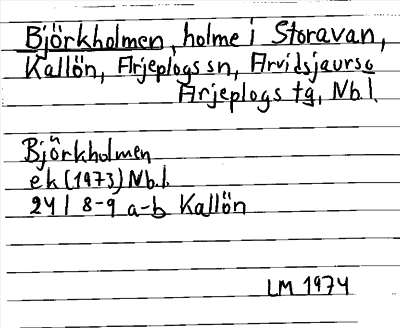 Björkholmen, holme i Storavan,
Kallön, Arjeplogs sn, Arvidsjaurs o
Arjeplogs tg, Nb.l.
Björkholmen
ek (1973) Nb.l.
24 I 8-9 a-b Kallön
LM 1974